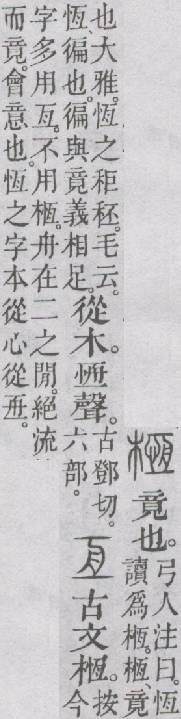 㮓竟也。
弓人注曰。恆
讀爲㮓。㮓竟
也大雅。恆之秬秠。毛云。
恆徧也。徧與竟義相足。
從木。恆聲。
古鄧切。
六部。
亙古文㮓。
按
今
字多用亙。不用㮓。舟在二之閒。絕流
而竟。會意也。恆之字本從心從𠄨。